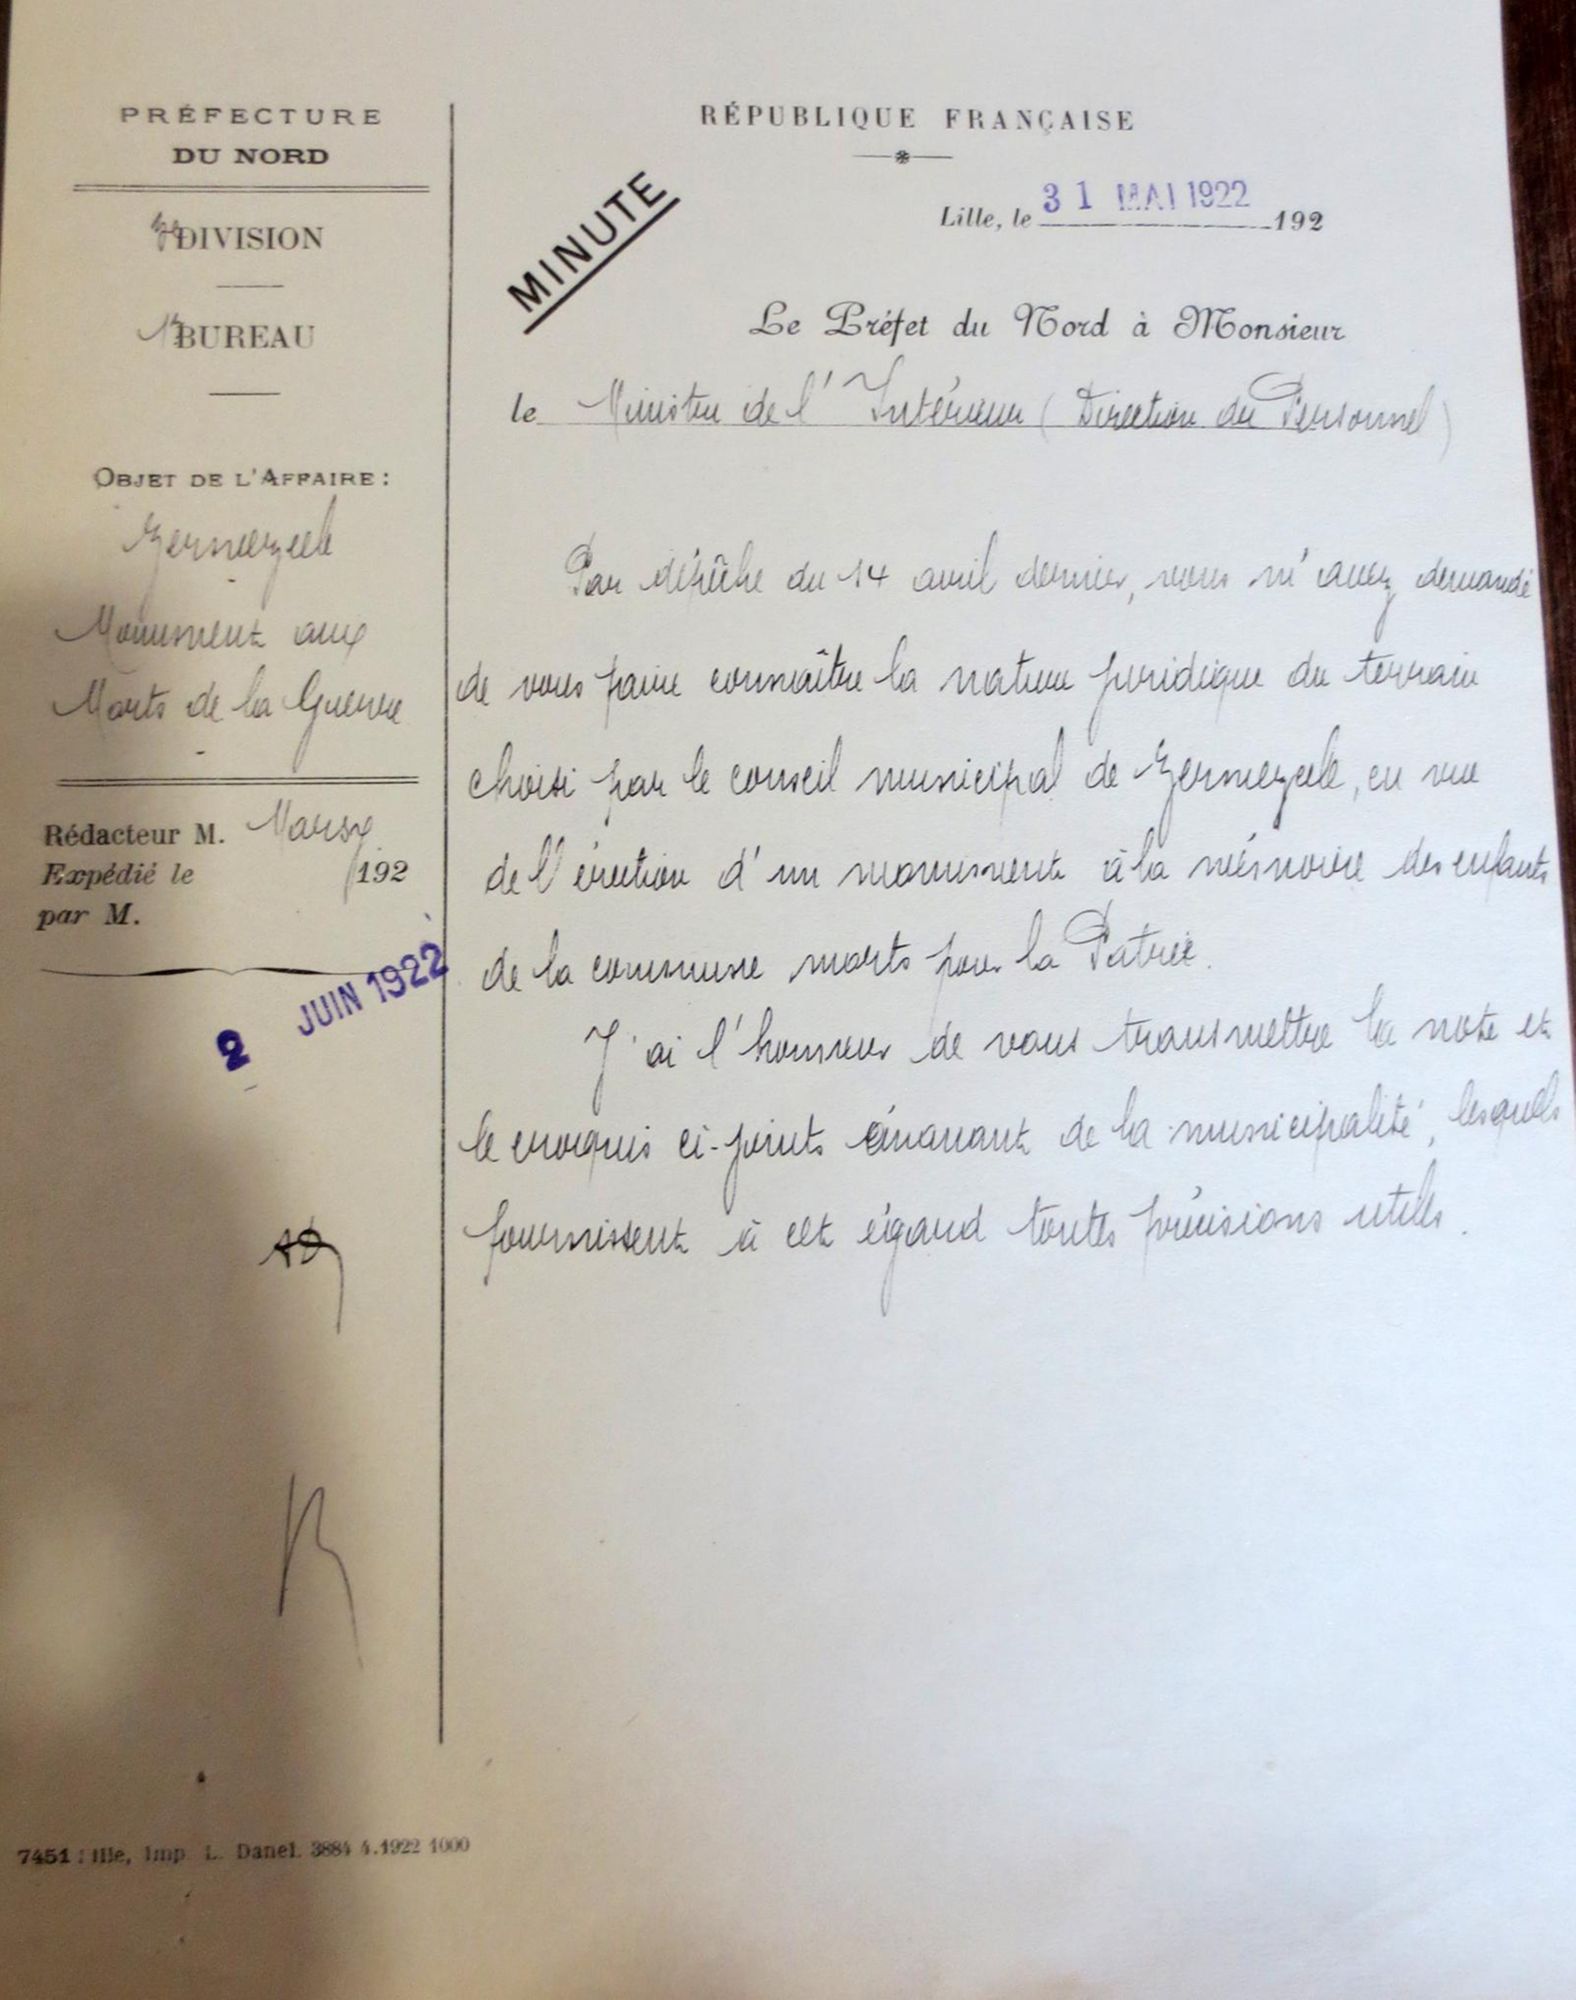 PRÉFECTURE
DU NORD
DIVISION
BUREAU
OBJET DE L'AFFAIRE :
Zermezeele
Monument aux
Morts de la Guerre
Rédacteur M.
Expédié le 192
par M.
2 JUIN 1922
RÉPUBLIQUE FRANÇAISE
MINUTE
Lille, le 31 MAI 1922 192
Le Préfet du Nord à Monsieur
le Ministre de l'Intérieur (Direction du Personnel)
Par dépêche du 14 avril dernier, vous m'avez demandé
de vous faire connaître la nature juridique du terrain
choisi par le conseil municipal de Zermezeele, en vue
de l'érection d'un monument à la mémoire des enfants
de la commune morts pour la Patrie.
J'ai l'honneur de vous transmettre la note et
le croquis ci-joints émanant de la municipalité, lesquels
fournissent à cet égard toutes précisions utiles.
7451 Lille, Imp. L. Danel. 3884 4.1922 1000